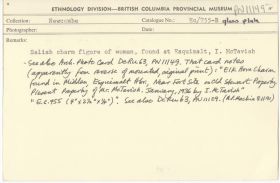 ETHNOLOGY DIVISION—BRITISH COLUMBIA PROVINCIAL MUSEUM PN11149
Collection: Newcombe Catalogue No.: Eq/755-B glass plate
Photographer: Date:
Remarks
Salish charm figure of woman, found at Esquimalt, I. McTavish
- See also Arch. Photo Card DcRu 63, PN 11149. That card notes
(apparently from reverse of mounted, original print): "Elk Horn Charm
found in Midden, Esquimalt Hbr., Near Fort Site on Old Stewart Property
Present Property of Mr. McTavish. January, 1936 by I. McTavish"
"E.C. 955 (4" x 2¾" x ½"). See also DcRu 63, PN 11109. (A. Mackie 8/1191)